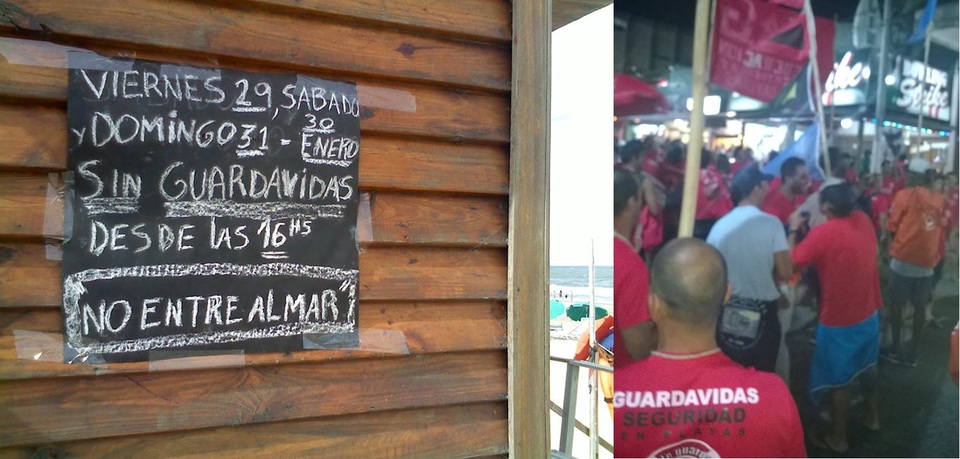 VIERNES 29, SABADO
30
Y DOMINGO 31 - ENERO
SIN GUARDAVIDAS
DESDE LAS 16HS
"NO ENTRE AL MAR"
Strike
GUARDAVIDAS
SEGURIDAD
EN PLAYAS